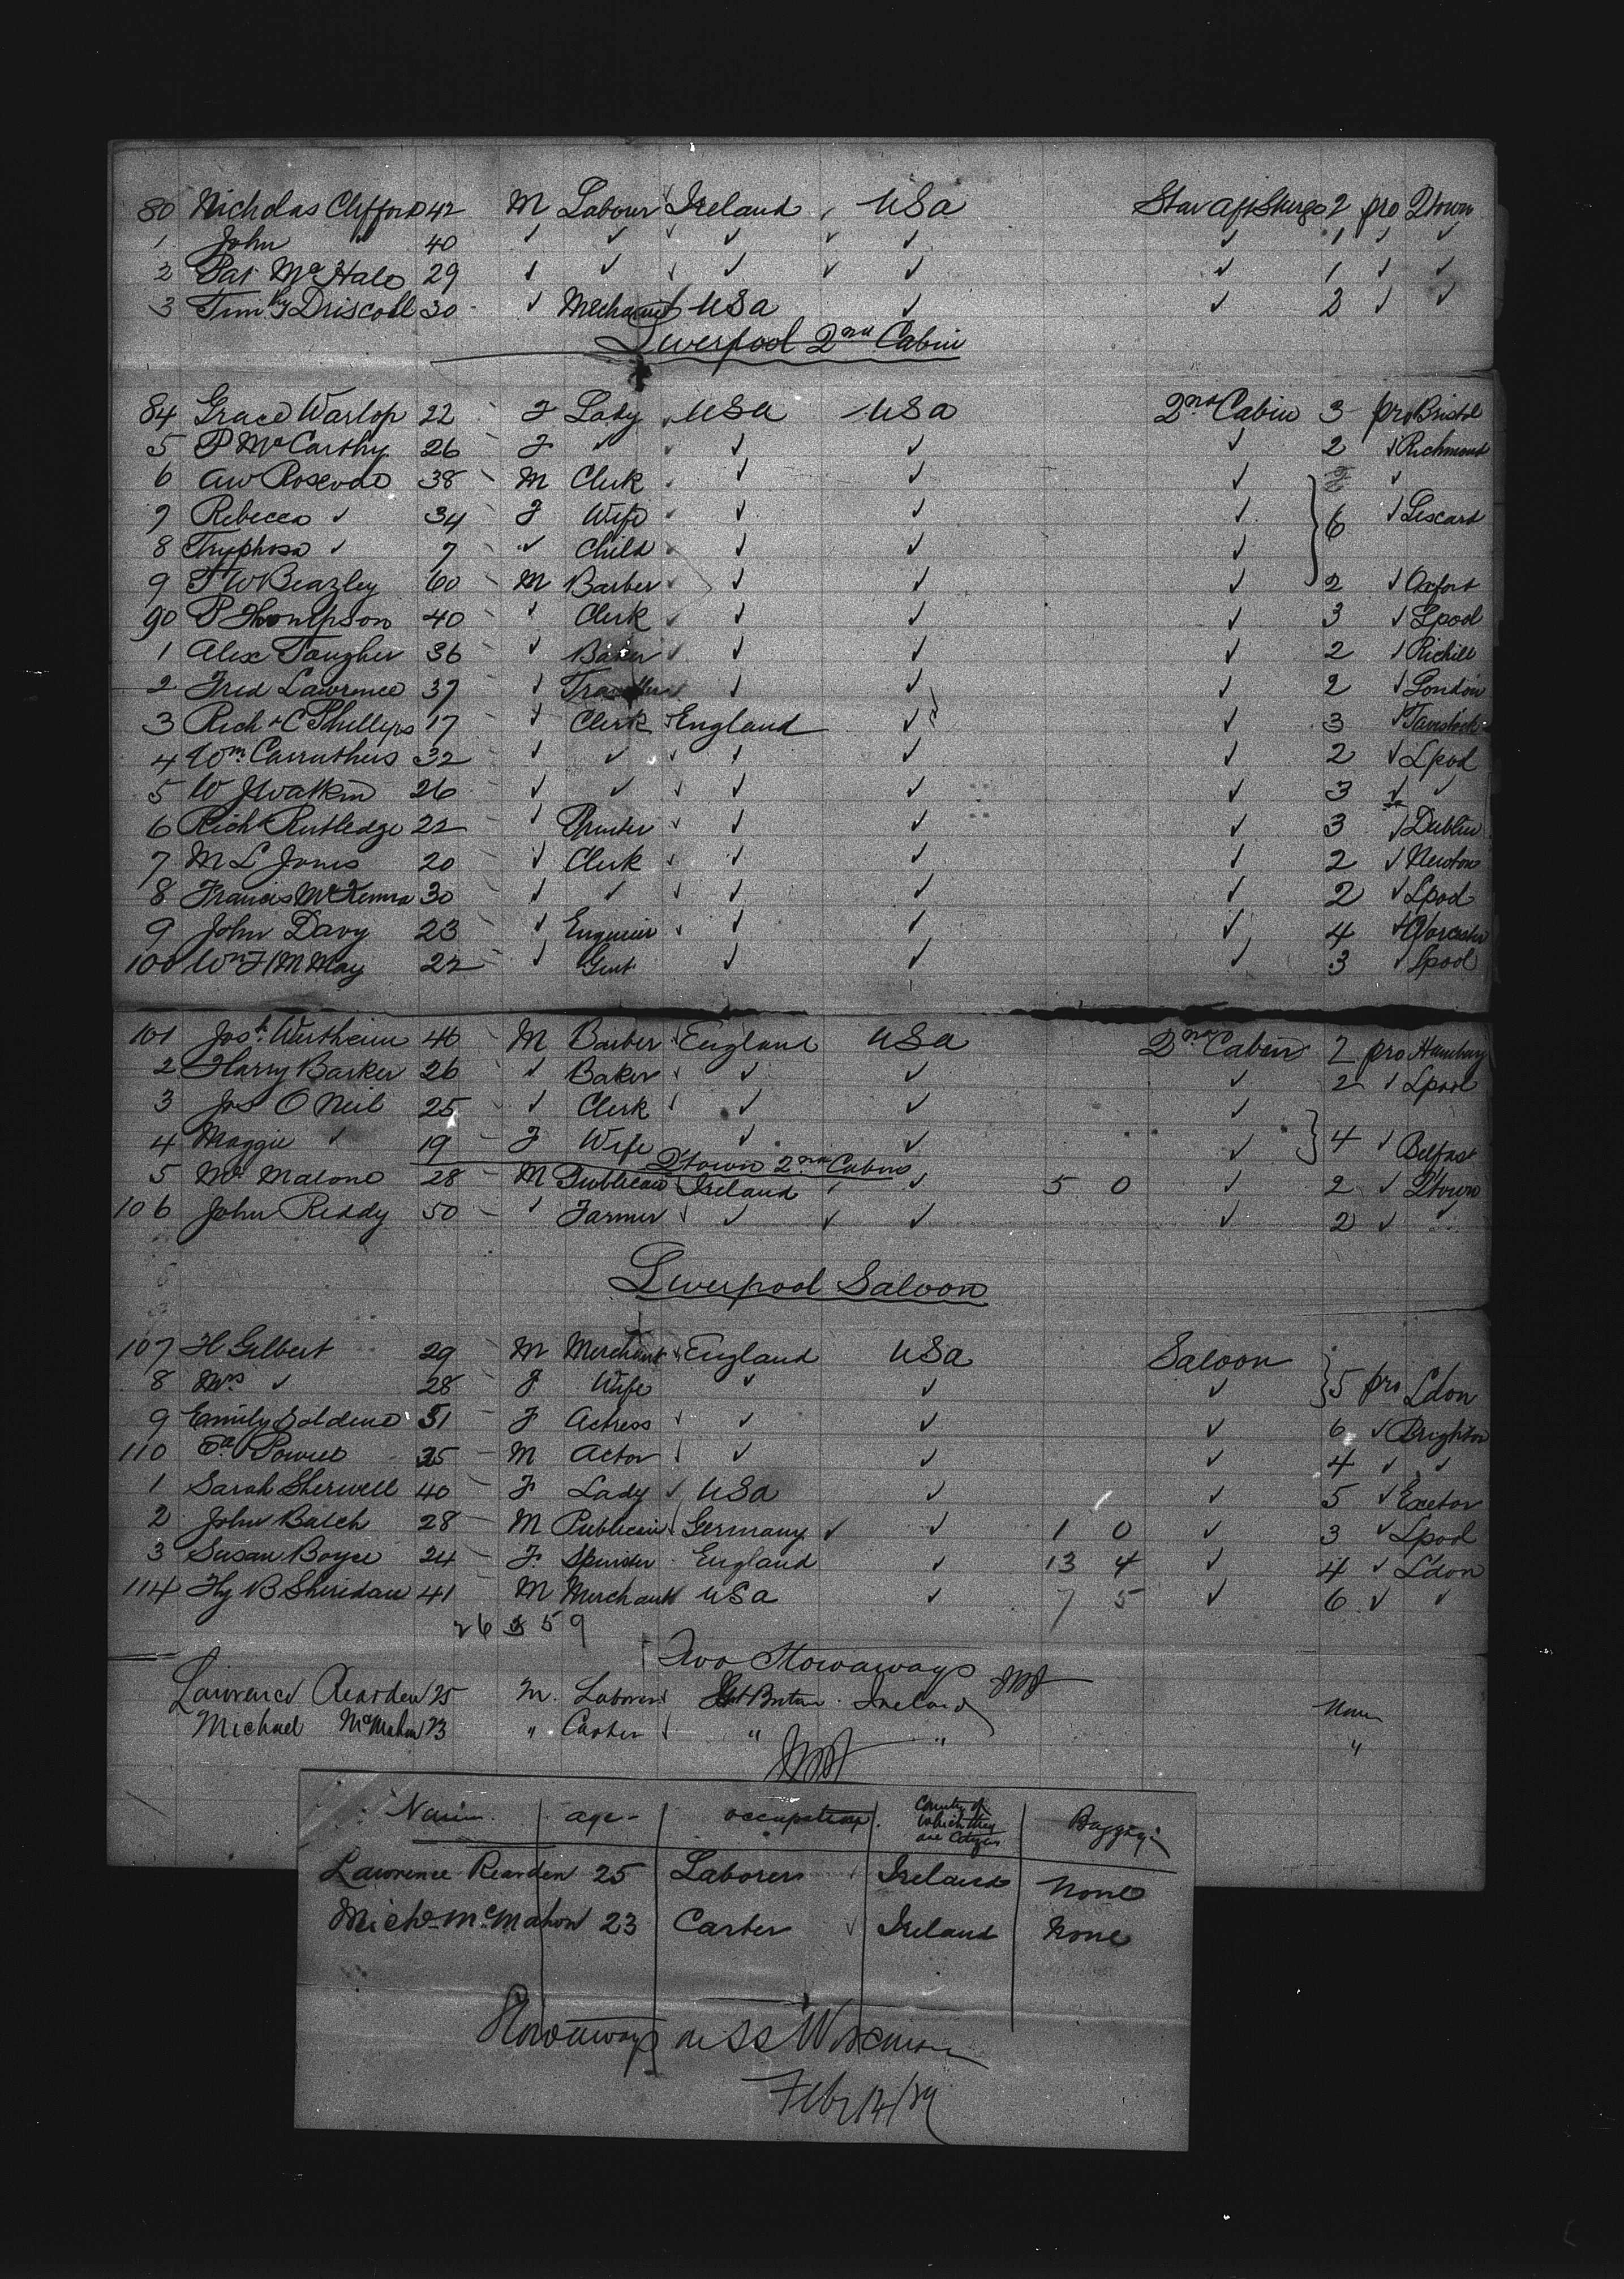 80 Nicholas Clifford 42 M Labour Ireland USA Star aft Sturge 2 pro Qtown
1 John ✓ 40 ✓ ✓ ✓ ✓ ✓ 1 ✓ ✓
2 Pat McHale 29 ✓ ✓ ✓ ✓ ✓ 1 ✓ ✓
3 Timthy Driscoll 30 ✓ Mechanic USA ✓ ✓ 2 ✓ ✓
Liverpool 2nd Cabin
84 Grace Warlop 22 F Lady USA USA 2nd Cabin 3 pro Bristol
5 P McCarthy 26 F ✓ ✓ ✓ ✓ 2 ✓ Richmond
6 AW 38 M Clerk ✓ ✓ ✓ ✓
7 Rebecca ✓ 34 F Wife ✓ ✓ ✓ 6 ✓ Liscard
8 Tryphosa ✓ 7 ✓ Child ✓ ✓ ✓
9 Beazley 60 M Barber ✓ ✓ ✓ 2 ✓ Oxfort
90 P Thompson 40 ✓ Clerk ✓ ✓ ✓ 3 ✓ Lpool
1 Alex Taugher 36 ✓ Baker ✓ ✓ ✓ 2 ✓ Richill
2 Fred Lawrence 37 ✓ ✓ ✓ ✓ 2 ✓ London
3 Rich C Phillips 17 ✓ Clerk England ✓ ✓ 3 ✓ Tavistock
4 Wm Carruthers 32 ✓ ✓ ✓ ✓ ✓ 2 ✓ Lpool
5 W J Watkin 26 ✓ ✓ ✓ ✓ ✓ 3 ✓ ✓
6 Rich Rutledge 22 ✓ Printer ✓ ✓ ✓ 3 ✓ Dublin
7 M L Jones 20 ✓ Clerk ✓ ✓ ✓ 2 ✓ Newton
8 Francis McKenna 30 ✓ ✓ ✓ ✓ ✓ 2 ✓ Lpool
9 John Davy 23 ✓ Engineer ✓ ✓ ✓ 4 ✓ Worcester
100 Wm F M May 22 ✓ Gent ✓ ✓ ✓ 3 ✓ Lpool
101 Jos. Wertheim 40 M Barber England USA 2nd Cabin 2 pro Hamburg
2 Harry Barker 26 ✓ Baker ✓ ✓ ✓ 2 ✓ Lpool
3 Jas O Neil 25 ✓ Clerk ✓ ✓ ✓
4 Maggie ✓ 19 F Wife ✓ ✓ ✓ 4 ✓ Belfast
Qtown 2nd Cabin
5 Malone 28 M Publican Ireland ✓ 5 0 ✓ 2 ✓ Qtown
106 John Reddy 50 ✓ Farmer ✓ ✓ ✓ 2 ✓ ✓
Liverpool Saloon
107 H Gilbert 29 M Merchant England USA Saloon 5 pro Ldon
8 Mrs ✓ 28 F Wife ✓ ✓ ✓
9 Emily Soldene 51 F Actress ✓ ✓ ✓ 6 ✓ Brighton
110 Powell 35 M Actor ✓ ✓ ✓ 4 ✓ ✓
1 Sarah Sherwell 40 F Lady USA ✓ ✓ 5 ✓ Exetor
2 John Balch 28 M Publican Germany ✓ ✓ 1 0 ✓ 3 ✓ Lpool
3 Susan Boyce 24 F Spinster England ✓ 13 4 ✓ 4 ✓ Ldon
114 Hy B Sheridan 41 M Merchant USA ✓ 7 5 ✓ 6 ✓ ✓
Two Stowaways
Lawrence Rearden 25 M. Laborer Ireland None
Michael McMahon 23 " Carter " " "
Name age occupation Country of which they are Citizens Baggage
Lawrence Rearden 25 Laborer Ireland None
Michl McMahon 23 Carter Ireland None
Stowaways SS Wisconsin
Feb 14/89